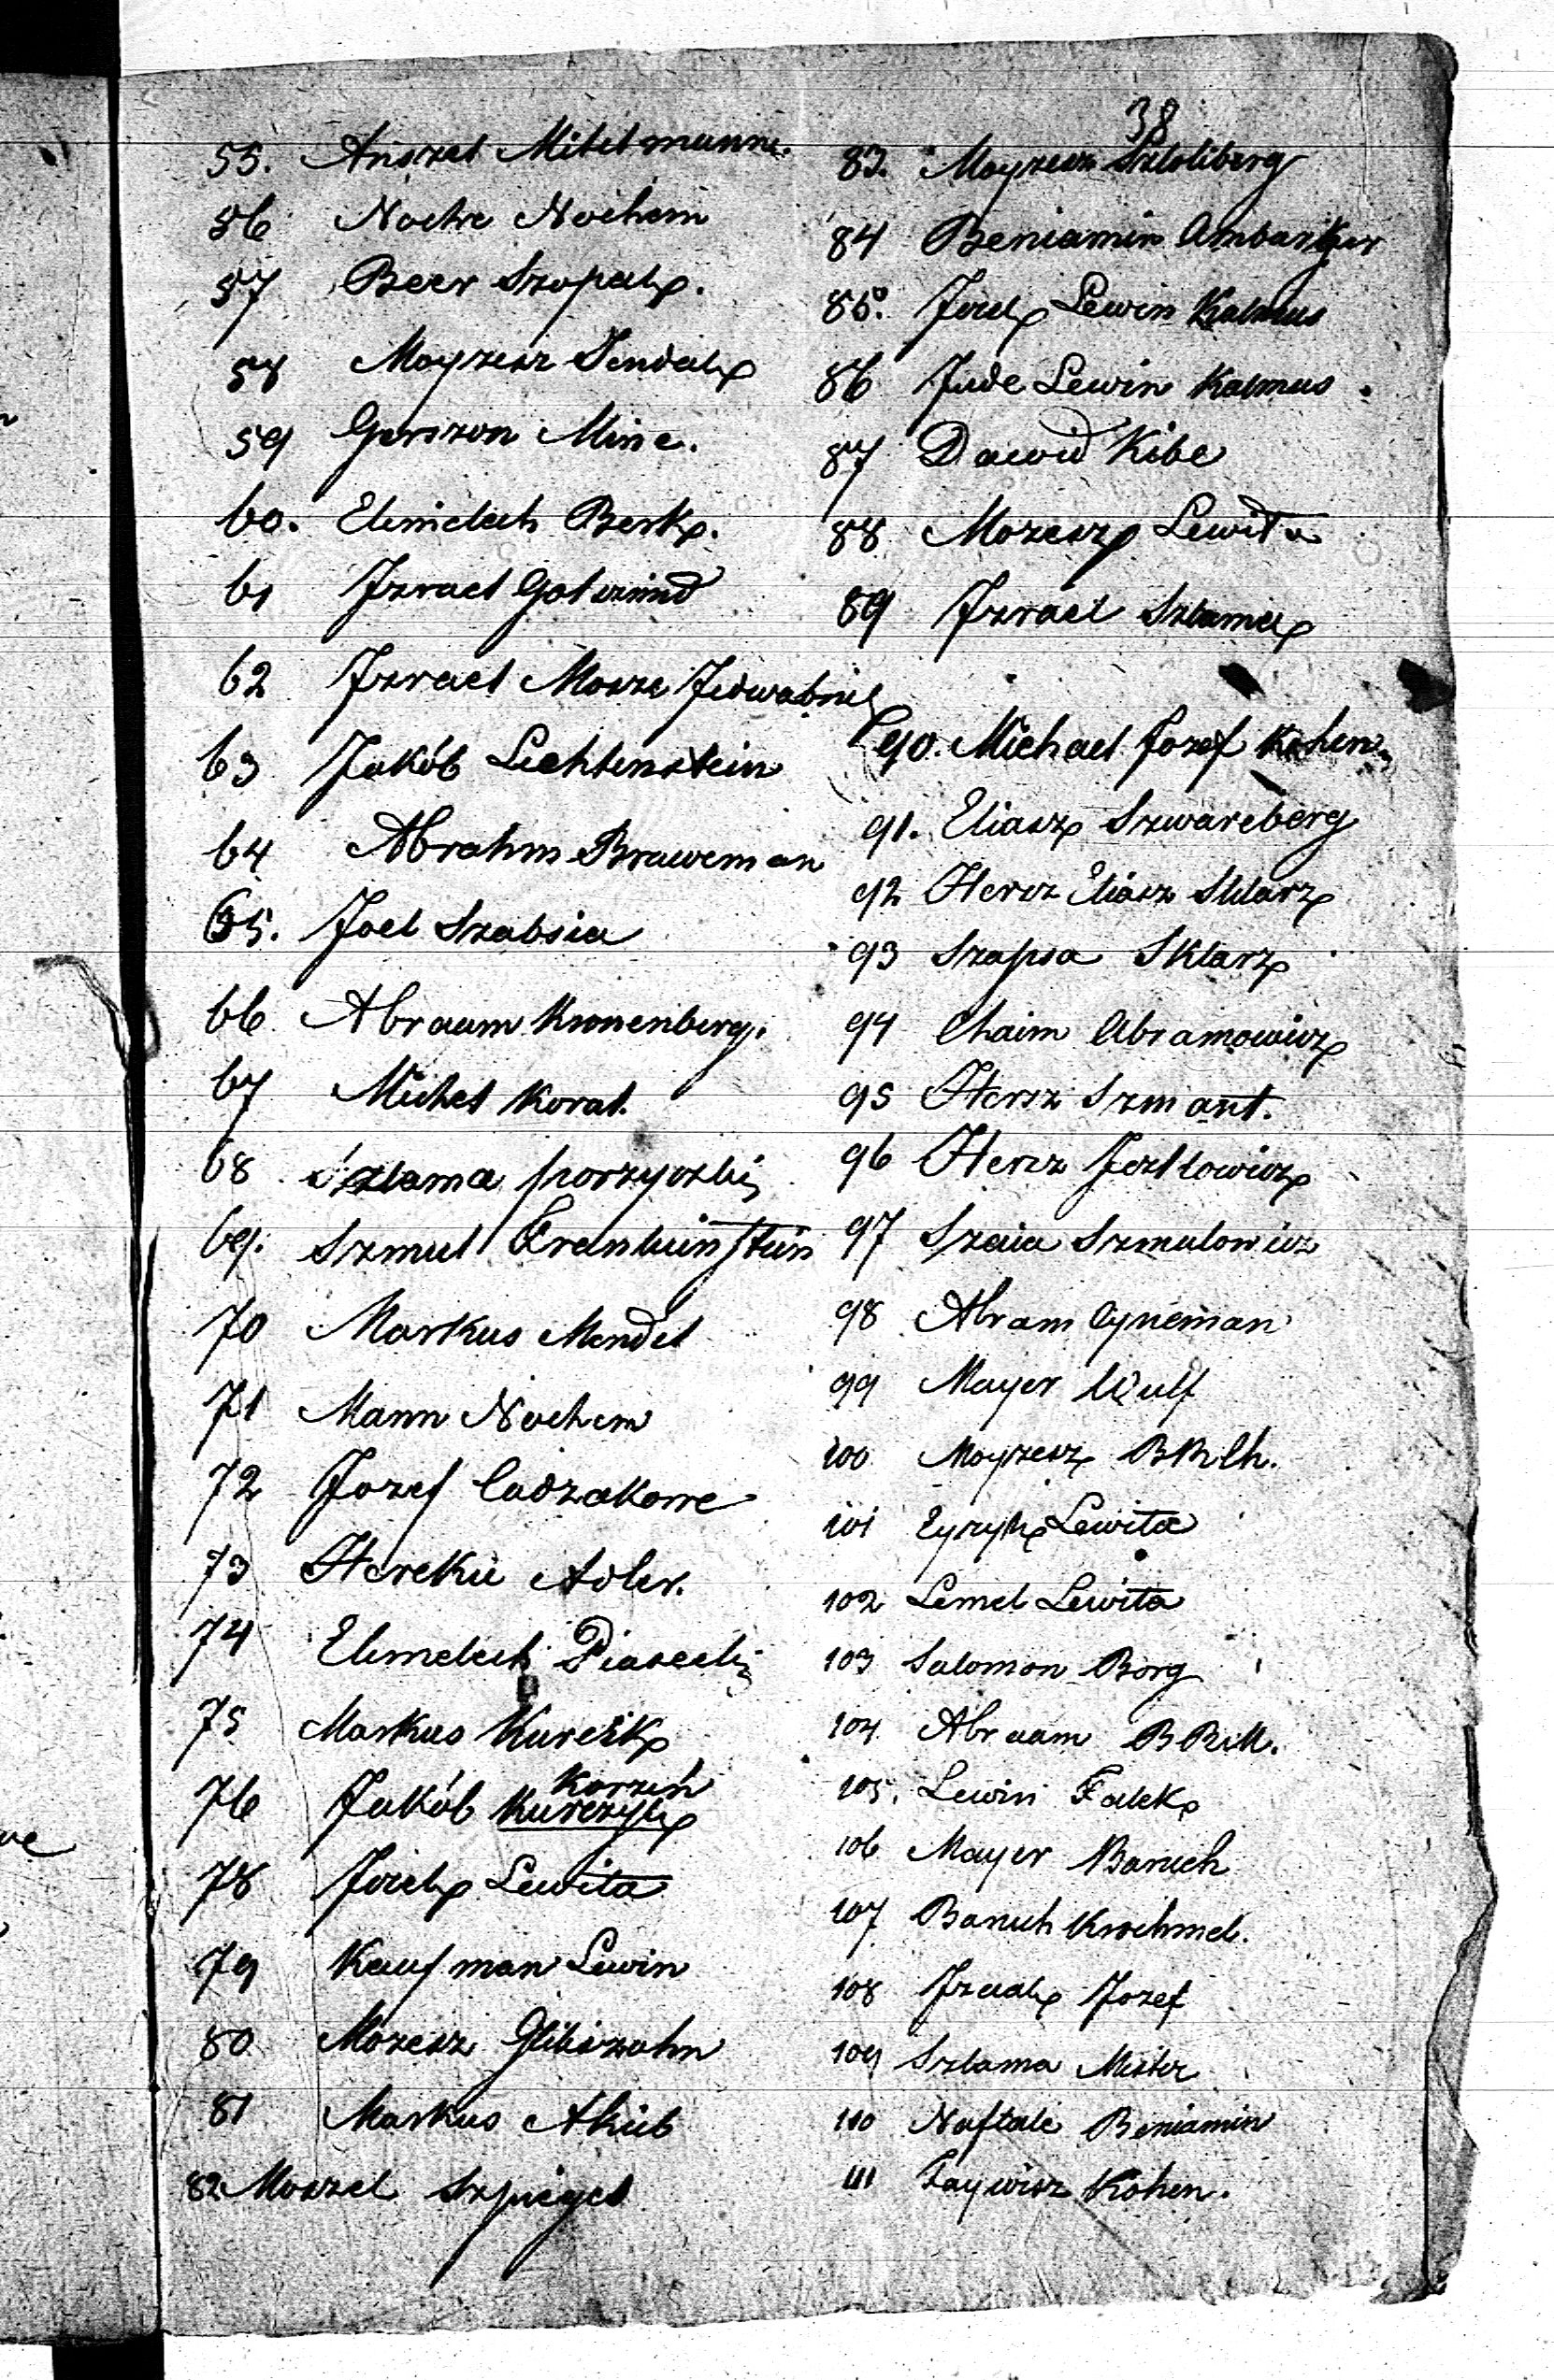 38
55. Anszel Mitelmanne.
56 Noche Nochem
57 Beer Szopak.
58 Moyzesz Sendak
59 Gerszon Mine.
60. Elimelech Berk.
61 Izrael Gotwind
62 Izrael Mosze Jedwabnik
63 Jakób Lichtenstein
64 Abrahm Braweman
65. Joel Szabsia
66 Abraam Kronenberg.
67 Michel Koral.
68 Szlama porzyczki
69. Szmul Frenkinstein
70 Markus Mendel
71 Mann Nochem
72 Jozef
73 Adler.
74 Elimelech Piasecki
75 Markus
76 Jakób Kurczyk Korzeń
78 Joick Lewita
79 Kaufman Lewin
80 Mozesz
81 Markus Akiib
82. Moszel Szpiegel
83. Moyzesz
84 Beniamin
85. Joick Lewin Kalmus
86 Jude Lewin Kalmus
87 Dawid Kibe
88 Mozesz Lewita
89 Izrael Szlama
90. Michael Jozef Kohen
91. Eliasz Szwarcberg
92 Hersz Eliasz Sklarz
93 Szapsa Sklarz
94 Chaim Abramowicz
95 Hersz Szmant.
96 Hersz Joskowicz
97 Szaia Szmulowicz
98 Abram Cyneman
99 Mayer Wulf
100 Moyzesz
101 Eyzyk Lewita
102 Lemel Lewita
103 Salomon Borg
104 Abraam
105. Lewin Falek
106 Mayer Baruch
107 Baruch Krochmel.
108 Izaak Jozef
109 Szlama Mester
110 Naftale Beniamin
111 Faywisz Kohen.